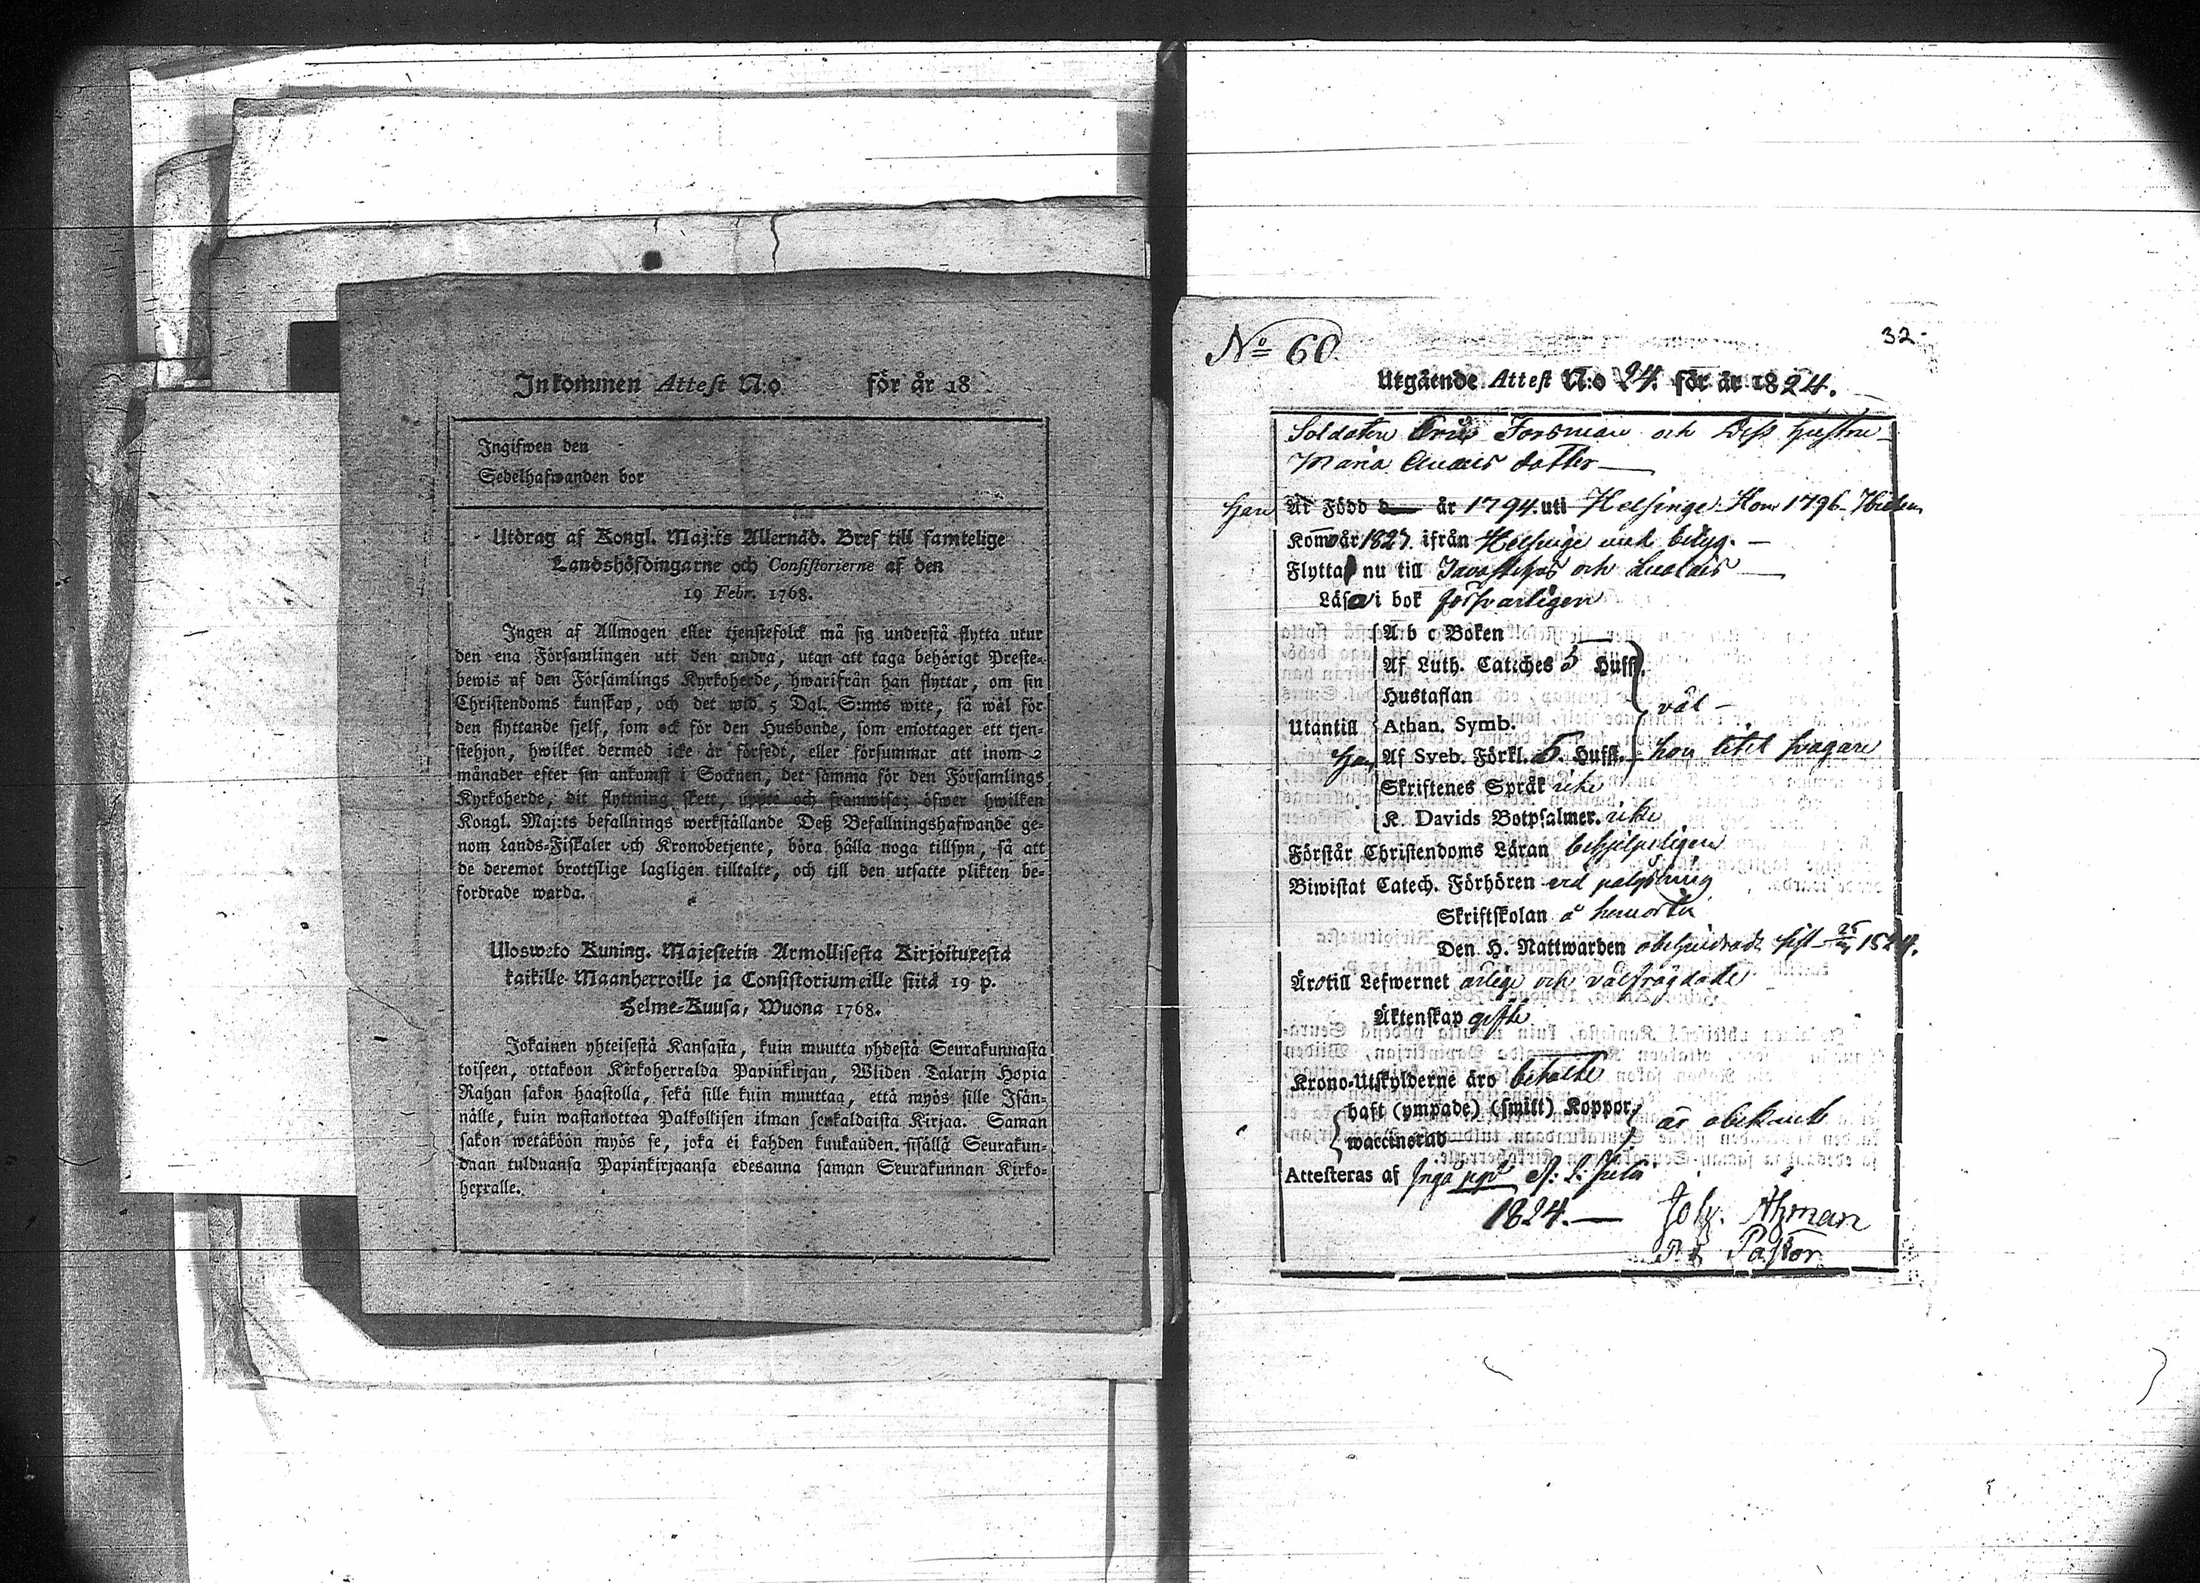 Inkommen Attest N:o för år 18
Ingifwen den
Sedelhafwanden bor
Utdrag af Kongl. Maj:ts Allernåd. Bref till samtelige
Landshöfdingarne och Consistorierne af den
19 Febr. 1768.
Ingen af Allmogen eller tjenstefolck må sig understå flytta utur
den ena Församlingen uti den andra, utan att taga behörigt Preste-
bewis af den Församlings Kyrkoherde, hwarifrån han flyttar, om sin
Christendoms kunskap, och det wid 5 Dal. S:mts wite, så wäl för
den flyttande sjelf, som ock för den Husbonde, som emottager ett tjen-
stehjon, hwilket dermed icke är försedt, eller försummar att inom 2
månader efter sin ankomst i Socknen, det samma för den Församlings
Kyrkoherde, dit flyttning skett, uppte och framwisa; öfwer hwilken
Kongl. Maj:ts befallnings werkställande Deß Befallningshafwande ge-
nom Lands-Fiskaler och Kronobetjente, böra hålla noga tillsyn, så att
de deremot brottslige lagligen tilltalte, och till den utsatte plikten be-
fordrade warda.
Ulosweto Kuning. Majestetin Armollisesta Kirjoituxesta
kaikille Maanherroille ja Consistoriumeille siitä 19 p.
Helme-Kuusa, Wuona 1768.
Jokainen yhteisestä Kansasta, kuin muutta yhdestä Seurakunnasta
toiseen, ottakoon Kirkoherralda Papinkirjan, Wiiden Talarin Hopia
Rahan sakon haastolla, sekä sille kuin muuttaa, että myös sille Isän-
nälle, kuin wastanottaa Palkollisen ilman senkaldaista Kirjaa. Saman
sakon wetäköön myös se, joka ei kahden kuukauden sisällä Seurakun-
daan tulduansa Papinkirjaansa edesanna saman Seurakunnan Kirko-
herralle.
No 60
32
Utgående Attest N:o 24 för år 1824.
Soldaten Forsman och Dess hustru
Maria dotter
han Är Född d år 1794 uti Helsinge Hon 1796
Kom år 1823 ifrån Helsinge med betyg.
Flytta nu till och
Läsa i bok försvarligen
A b c Boken
Af Luth. Catches 5 Hufst.
Hustaflan
väl
Utantill Athan. Symb.
han Af Sveb. Förkl. 5. Hufst. hon litet svagare
Skriftenes Språk icke
K. Davids Botpsalmer. icke
Förstår Christendoms Läran behjelpeligen
Biwistat Catech. Förhören
Skriftskolan å
Den H. Nattwarden obehindradt sist 1824.
Äro till Lefwernet ärlige och välfrägdade
Äktenskap gifte
Krono-Utskylderne äro betalte
haft (ympade) (smitt) Koppor
är obekant
waccinerad
Attesteras af Ingå
1824.
Joh. Åhman
Pastor